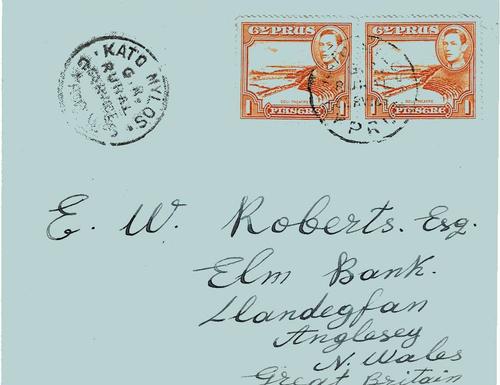 CYPRUS CYPRUS
SOLI THEATRE
1 PIASTRE 1 1 PIASTRE 1
KATO MYLOS
G. R.
RURAL
SERVICE
CYPRUS
E. W. Roberts. Esq.
Elm Bank.
Llandegfan
Anglesey
N. Wales
Great Britain